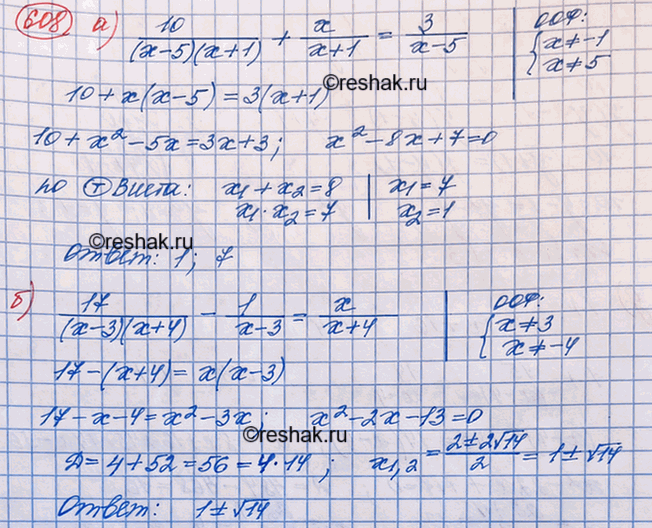 608 а) 10/((x-5)(x+1)) + x/(x+1) = 3/(x-5) | ООФ: { x≠-1 x≠5
©reshak.ru
10 + x(x-5) = 3(x+1)
10 + x² - 5x = 3x + 3; x² - 8x + 7 = 0
по Ⓣ Виета: x₁ + x₂ = 8 | x₁ = 7
x₁ · x₂ = 7 | x₂ = 1
©reshak.ru
Ответ: 1; 7
б) 17/((x-3)(x+4)) - 1/(x-3) = x/(x+4) | ООФ: { x≠3 x≠-4
17 - (x+4) = x(x-3)
17 - x - 4 = x² - 3x; x² - 2x - 13 = 0
©reshak.ru
Д = 4 + 52 = 56 = 4·14; x₁,₂ = (2 ± 2√14)/2 = 1 ± √14
Ответ: 1 ± √14